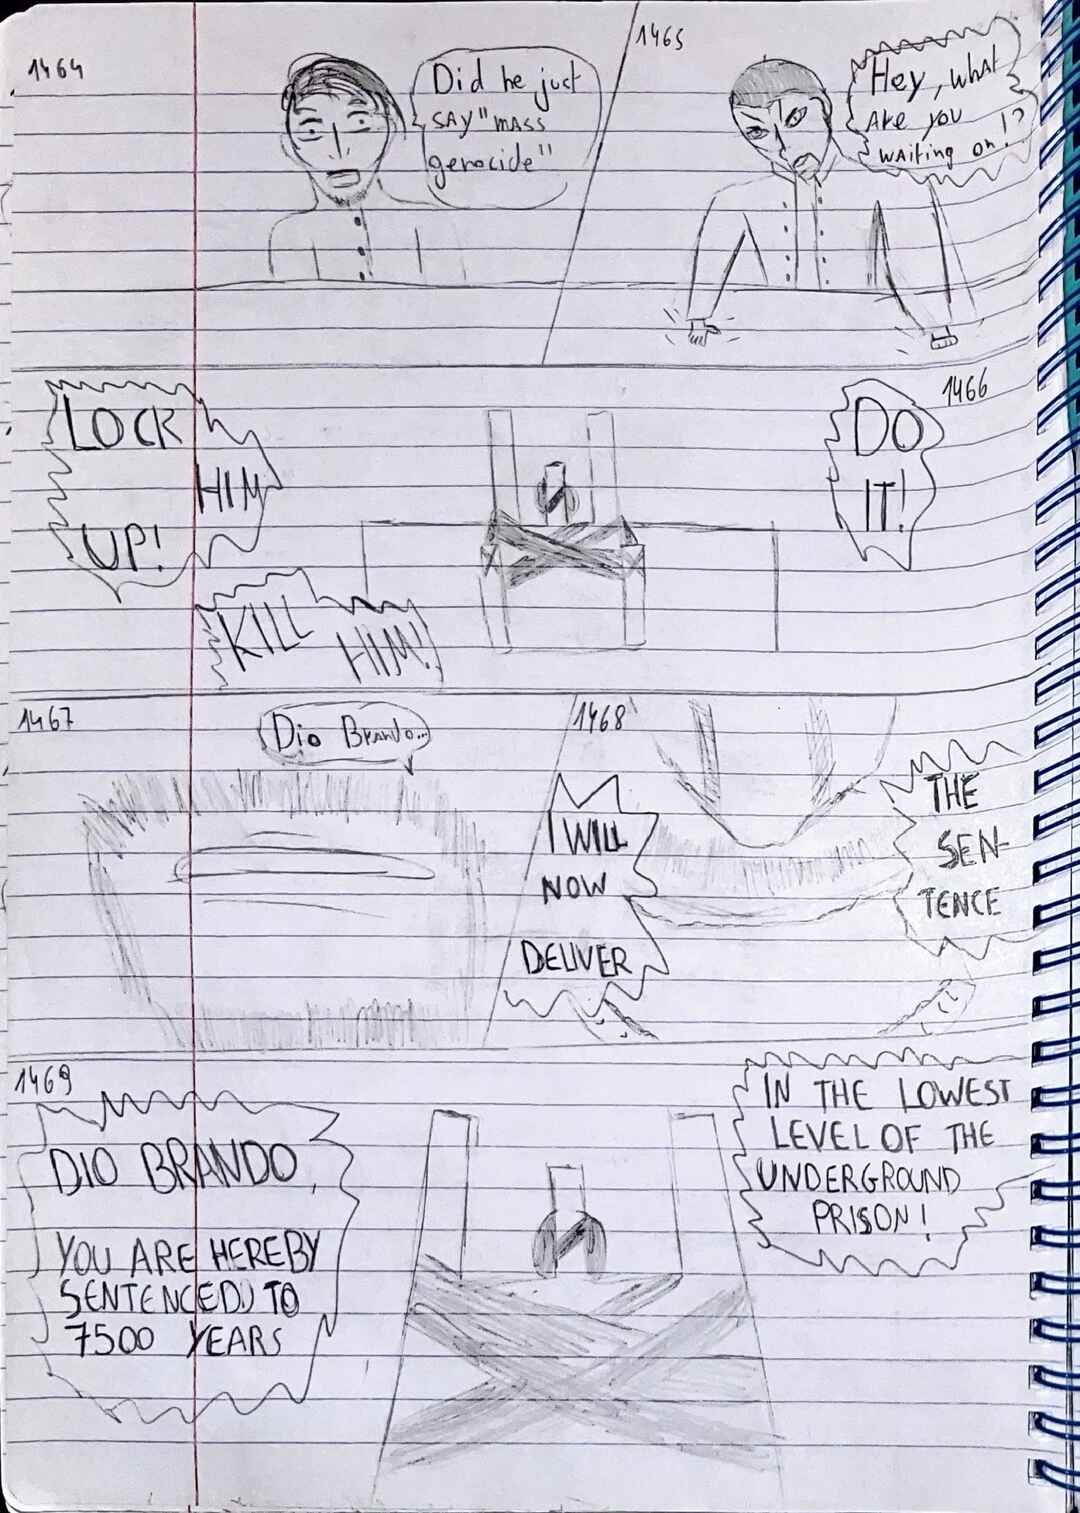 1464
Did he just
SAY "MASS
genocide"
1465
Hey, what
Are you
waiting on!?
1466
LOCK
HIM
UP!
KILL
HIM!
DO
IT!
1467
Dio Brando...
1468
I WILL
NOW
DELIVER
THE
SEN-
TENCE
1469
DIO BRANDO,
YOU ARE HEREBY
SENTENCED TO
7500 YEARS
IN THE LOWEST
LEVEL OF THE
UNDERGROUND
PRISON!